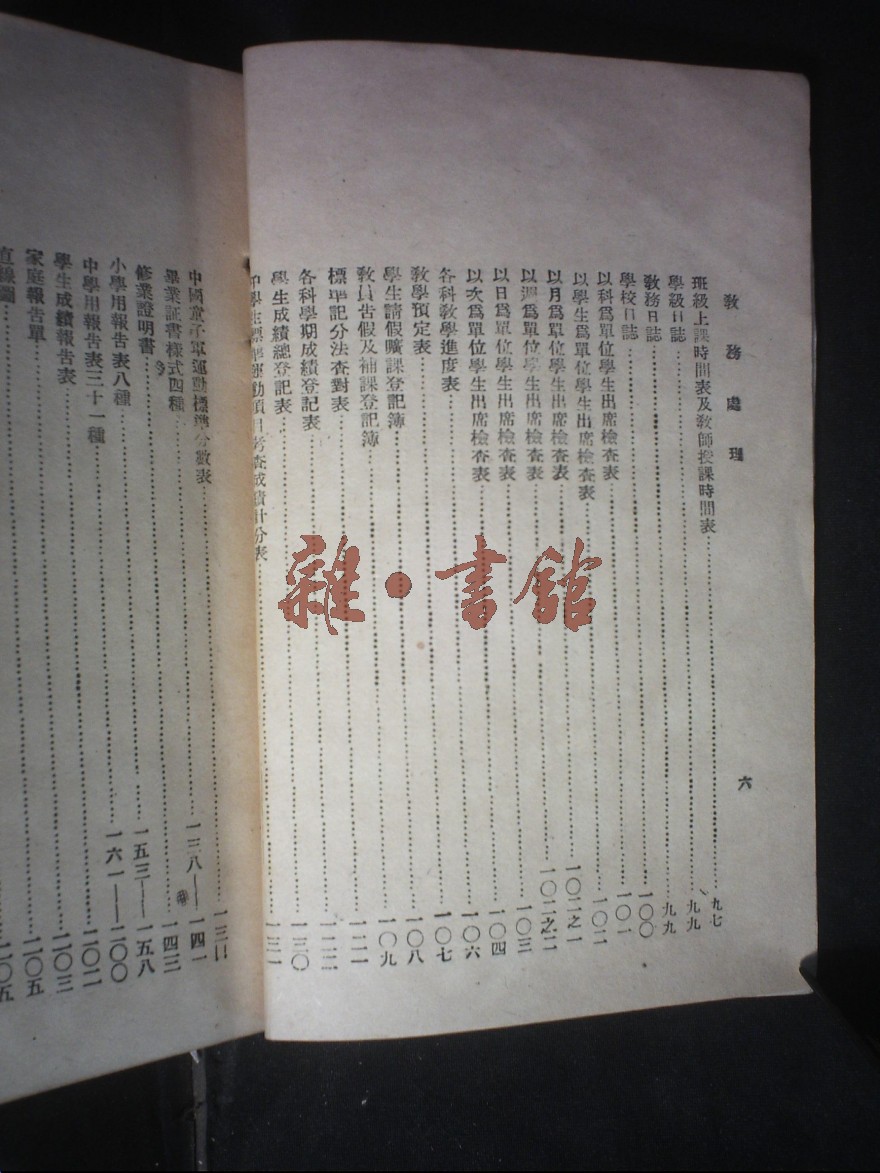 教務處理
六
班級上課時間表及教師授課時間表……九七
學級日誌……九九
教務日誌……九九
學校日誌……一〇〇
以科爲單位學生出席檢查表……一〇一
以學生爲單位學生出席檢查表……一〇二
以月爲單位學生出席檢查表……一〇二之一
以週爲單位學生出席檢查表……一〇二之二
以日爲單位學生出席檢查表……一〇三
以次爲單位學生出席檢查表……一〇四
各科教學進度表……一〇六
教學預定表……一〇七
學生請假曠課登記簿……一〇八
教員告假及補課登記簿……一〇九
標準記分法查對表
各科學期成績登記表
學生成績總登記表……一三〇
中學生標準運動項目考查成績計分表……一三一
中國童子軍運動標準分數表
畢業証書樣式四種……一三八——一四一
修業證明書……一四三
小學用報告表八種……一五三——一五八
中學用報告表三十一種……一六一——二〇〇
學生成績報告表……二〇二
家庭報告單……二〇三
直線圖……二〇五
雜·書館